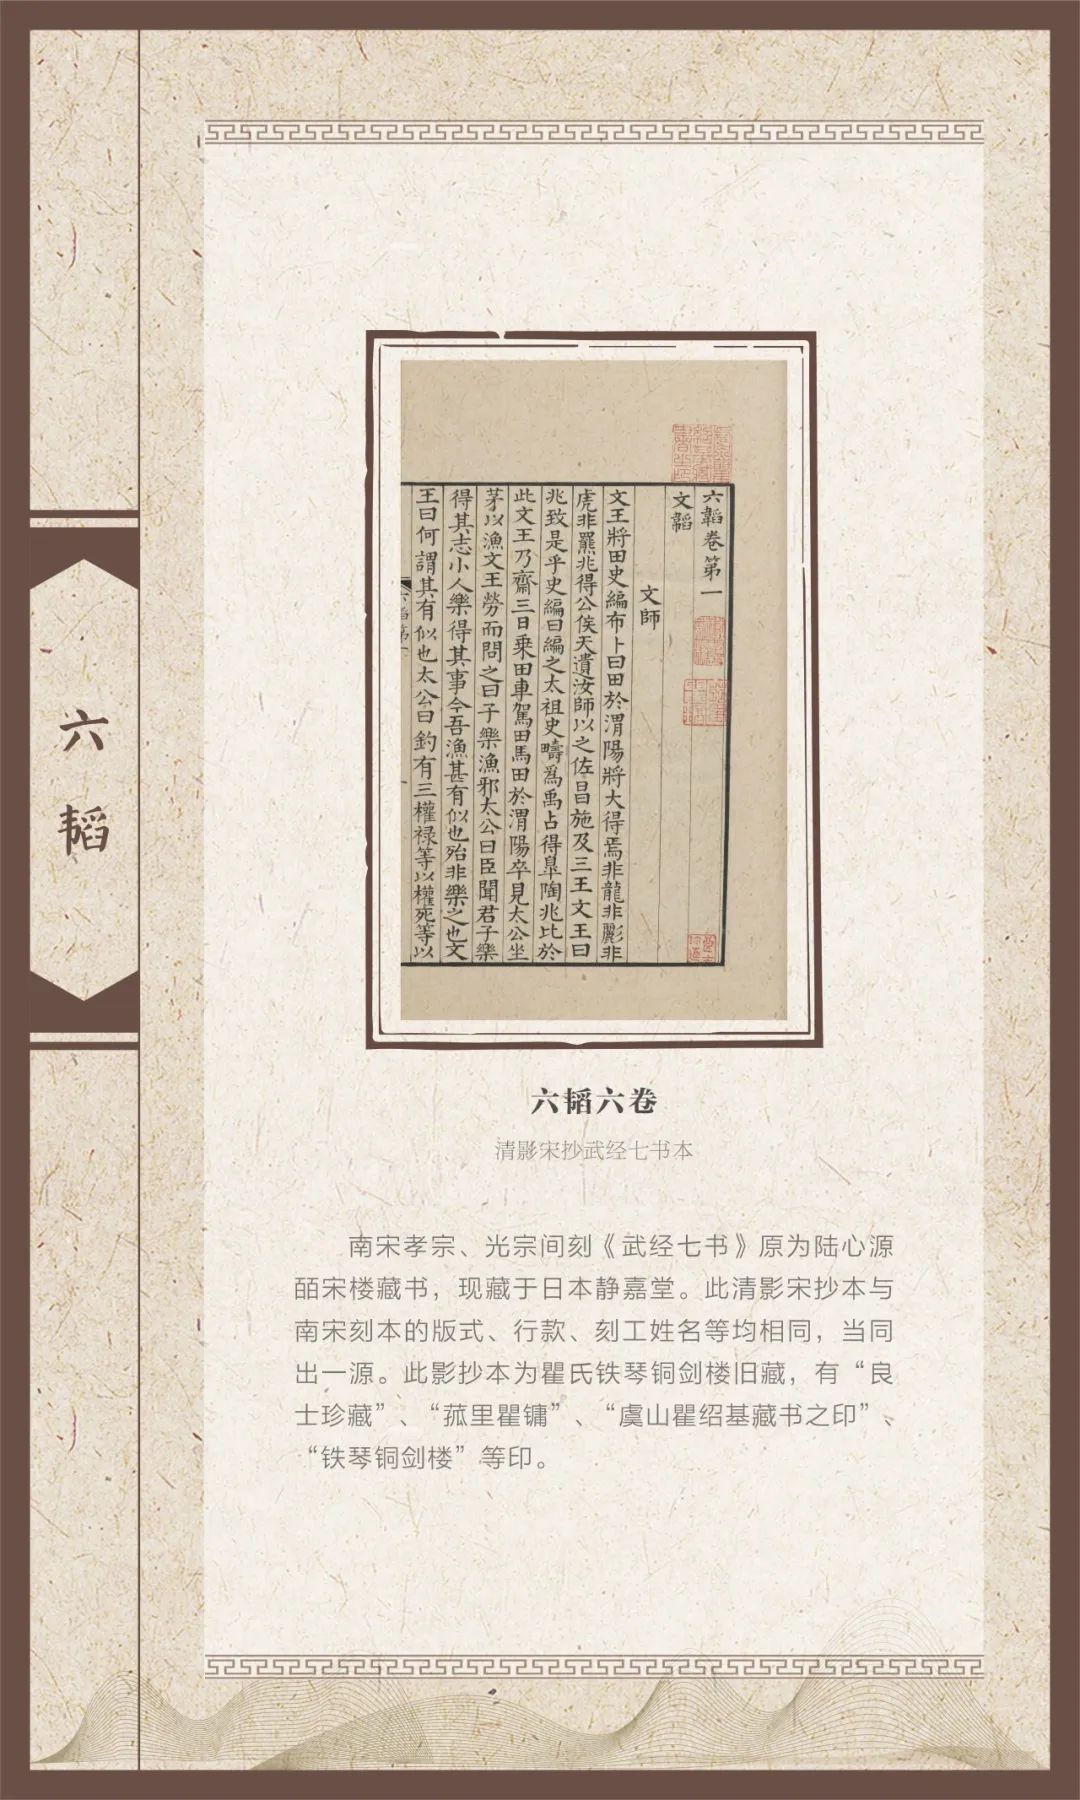 六韬
六韜卷第一
文韜
文師
文王將田史編布卜曰田於渭陽將大得焉非龍非彲非
虎非羆兆得公侯天遺汝師以之佐昌施及三王文王曰
兆致是乎史編曰編之太祖史疇爲禹占得皋陶兆比於
此文王乃齋三日乘田車駕田馬田於渭陽卒見太公坐
茅以漁文王勞而問之曰子樂漁邪太公曰臣聞君子樂
得其志小人樂得其事今吾漁甚有似也殆非樂之也文
王曰何謂其有似也太公曰釣有三權禄等以權死等以
六韬六卷
清影宋抄武经七书本
南宋孝宗、光宗间刻《武经七书》原为陆心源
皕宋楼藏书，现藏于日本静嘉堂。此清影宋抄本与
南宋刻本的版式、行款、刻工姓名等均相同，当同
出一源。此影抄本为瞿氏铁琴铜剑楼旧藏，有“良
士珍藏”、“菰里瞿镛”、“虞山瞿绍基藏书之印”、
“铁琴铜剑楼”等印。